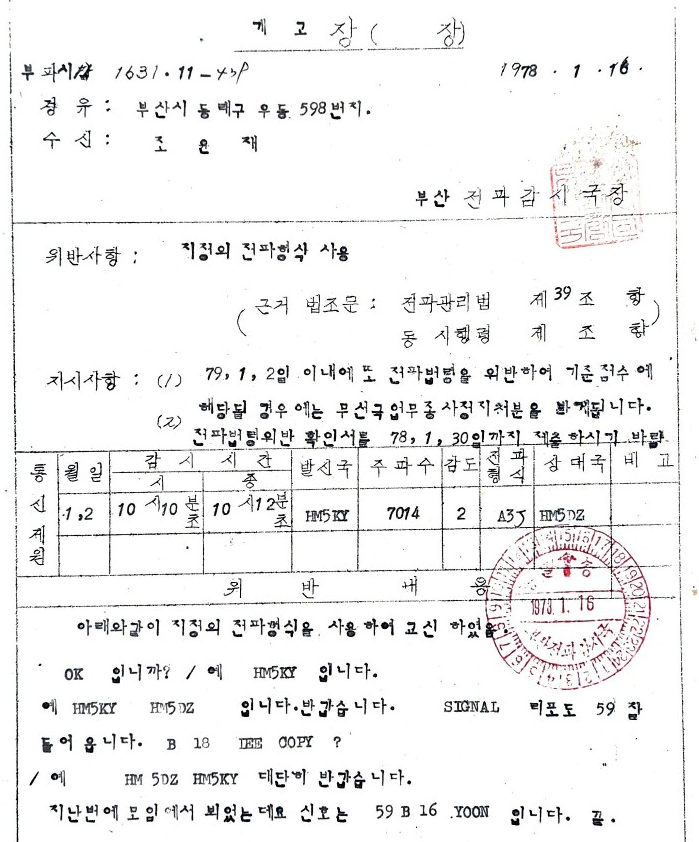 계 고 장 ( 장)
부파시 1631.11-439 1978 . 1 . 16 .
경 유 : 부산시 동래구 우동 598번지.
수 신 : 조 윤 재
부산 전파감시국장
위반사항 : 지정외 전파형식 사용
( 근거 법조문 : 전파관리법 제 39 조 항
동 시행령 제 조 항 )
지시사항 : (1) 79,1,2일 이내에 또 전파법령을 위반하여 기준점수에
해당될 경우에는 무선국업무종사정지처분을 받게됩니다.
(2) 전파법령위반 확인서를 78,1,30일까지 제출하시기 바람
통신계원 월일 감시시간 발신국 주파수 감도 전파형식 상대국 비고
시 종
1,2 10 시10 분 초 10 시12 분 초 HM5KY 7014 2 A3J HM5DZ
위 반 내 용
아래와같이 지정외 전파형식을 사용하여 교신 하였음.
OK 입니까? / 예 HM5KY 입니다.
예 HM5KY HM5DZ 입니다.반갑습니다. SIGNAL 리포도 59 잘
들어 옵니다. B 18 IEE COPY ?
/ 예 HM 5DZ HM5KY 대단히 반갑습니다.
지난번에 모임에서 뵈었는데요 신호는 59 B 16 .YOON 입니다. 끝.
1978. 1. 16
부산전파감시국